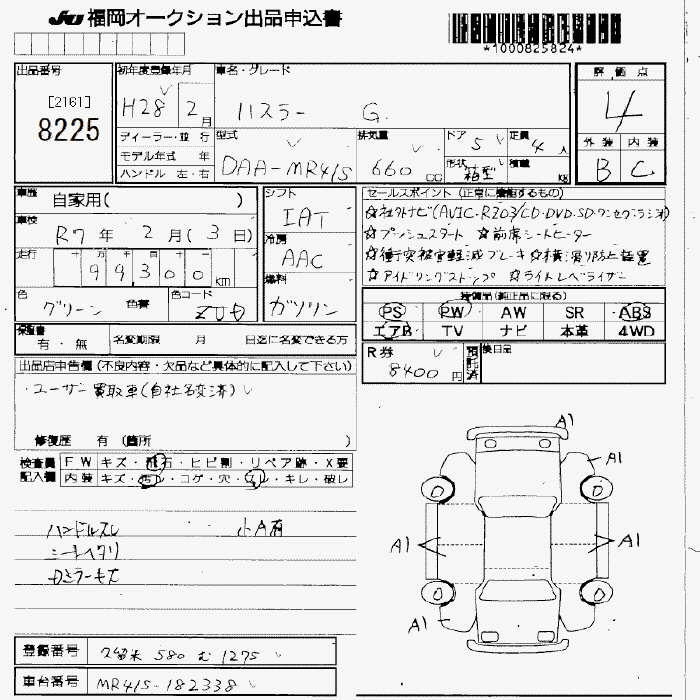 JU 福岡オークション出品申込書
*1000825824*
出品番号
[2161]
8225
初年度登録年月
H28 2月
車名・グレード
ハスラー G
評価点
4
外装 内装
B C
ディーラー・並行
モデル年式 年
ハンドル 左・右
型式
DAA-MR41S
排気量
660 CC
ドア
5
形状
箱型
定員
4人
積載
KG
車歴
自家用( )
車検
R7年 2月(3日)
走行
十万千百十
99300KM
色
グリーン
色替
色コード
ZUD
シフト
IAT
冷房
AAC
燃料
ガソリン
セールスポイント(正常に機能するもの)
☆社外ナビ(AVIC-RZ03/CD・DVD・SD・ワンセグ・ラジオ)
☆プッシュスタート ☆前席シートヒーター
☆衝突被害軽減ブレーキ ☆横滑り防止装置
☆アイドリングストップ ☆ライトレベライザー
装備品(純正品に限る)
PS PW AW SR ABS
エアB TV ナビ 本革 4WD
保証書
有・無
名変期限 月 日迄に名変できる方
R券
8400円
預託済
後日品
出品店申告欄(不良内容・欠品など具体的に記入して下さい)
・ユーザー買取車(自社名変済)
修復歴 有 (箇所 )
検査員記入欄
FW キズ・飛石・ヒビ割・リペア跡・X要
内装 キズ・汚レ・コゲ・穴・スレ・キレ・破レ
ハンドルスレ 小A有
シートヘタリ
Dミラーキズ
A1
A1
A1
A1
A1
登録番号
久留米 580 む 1275
車台番号
MR41S-182338